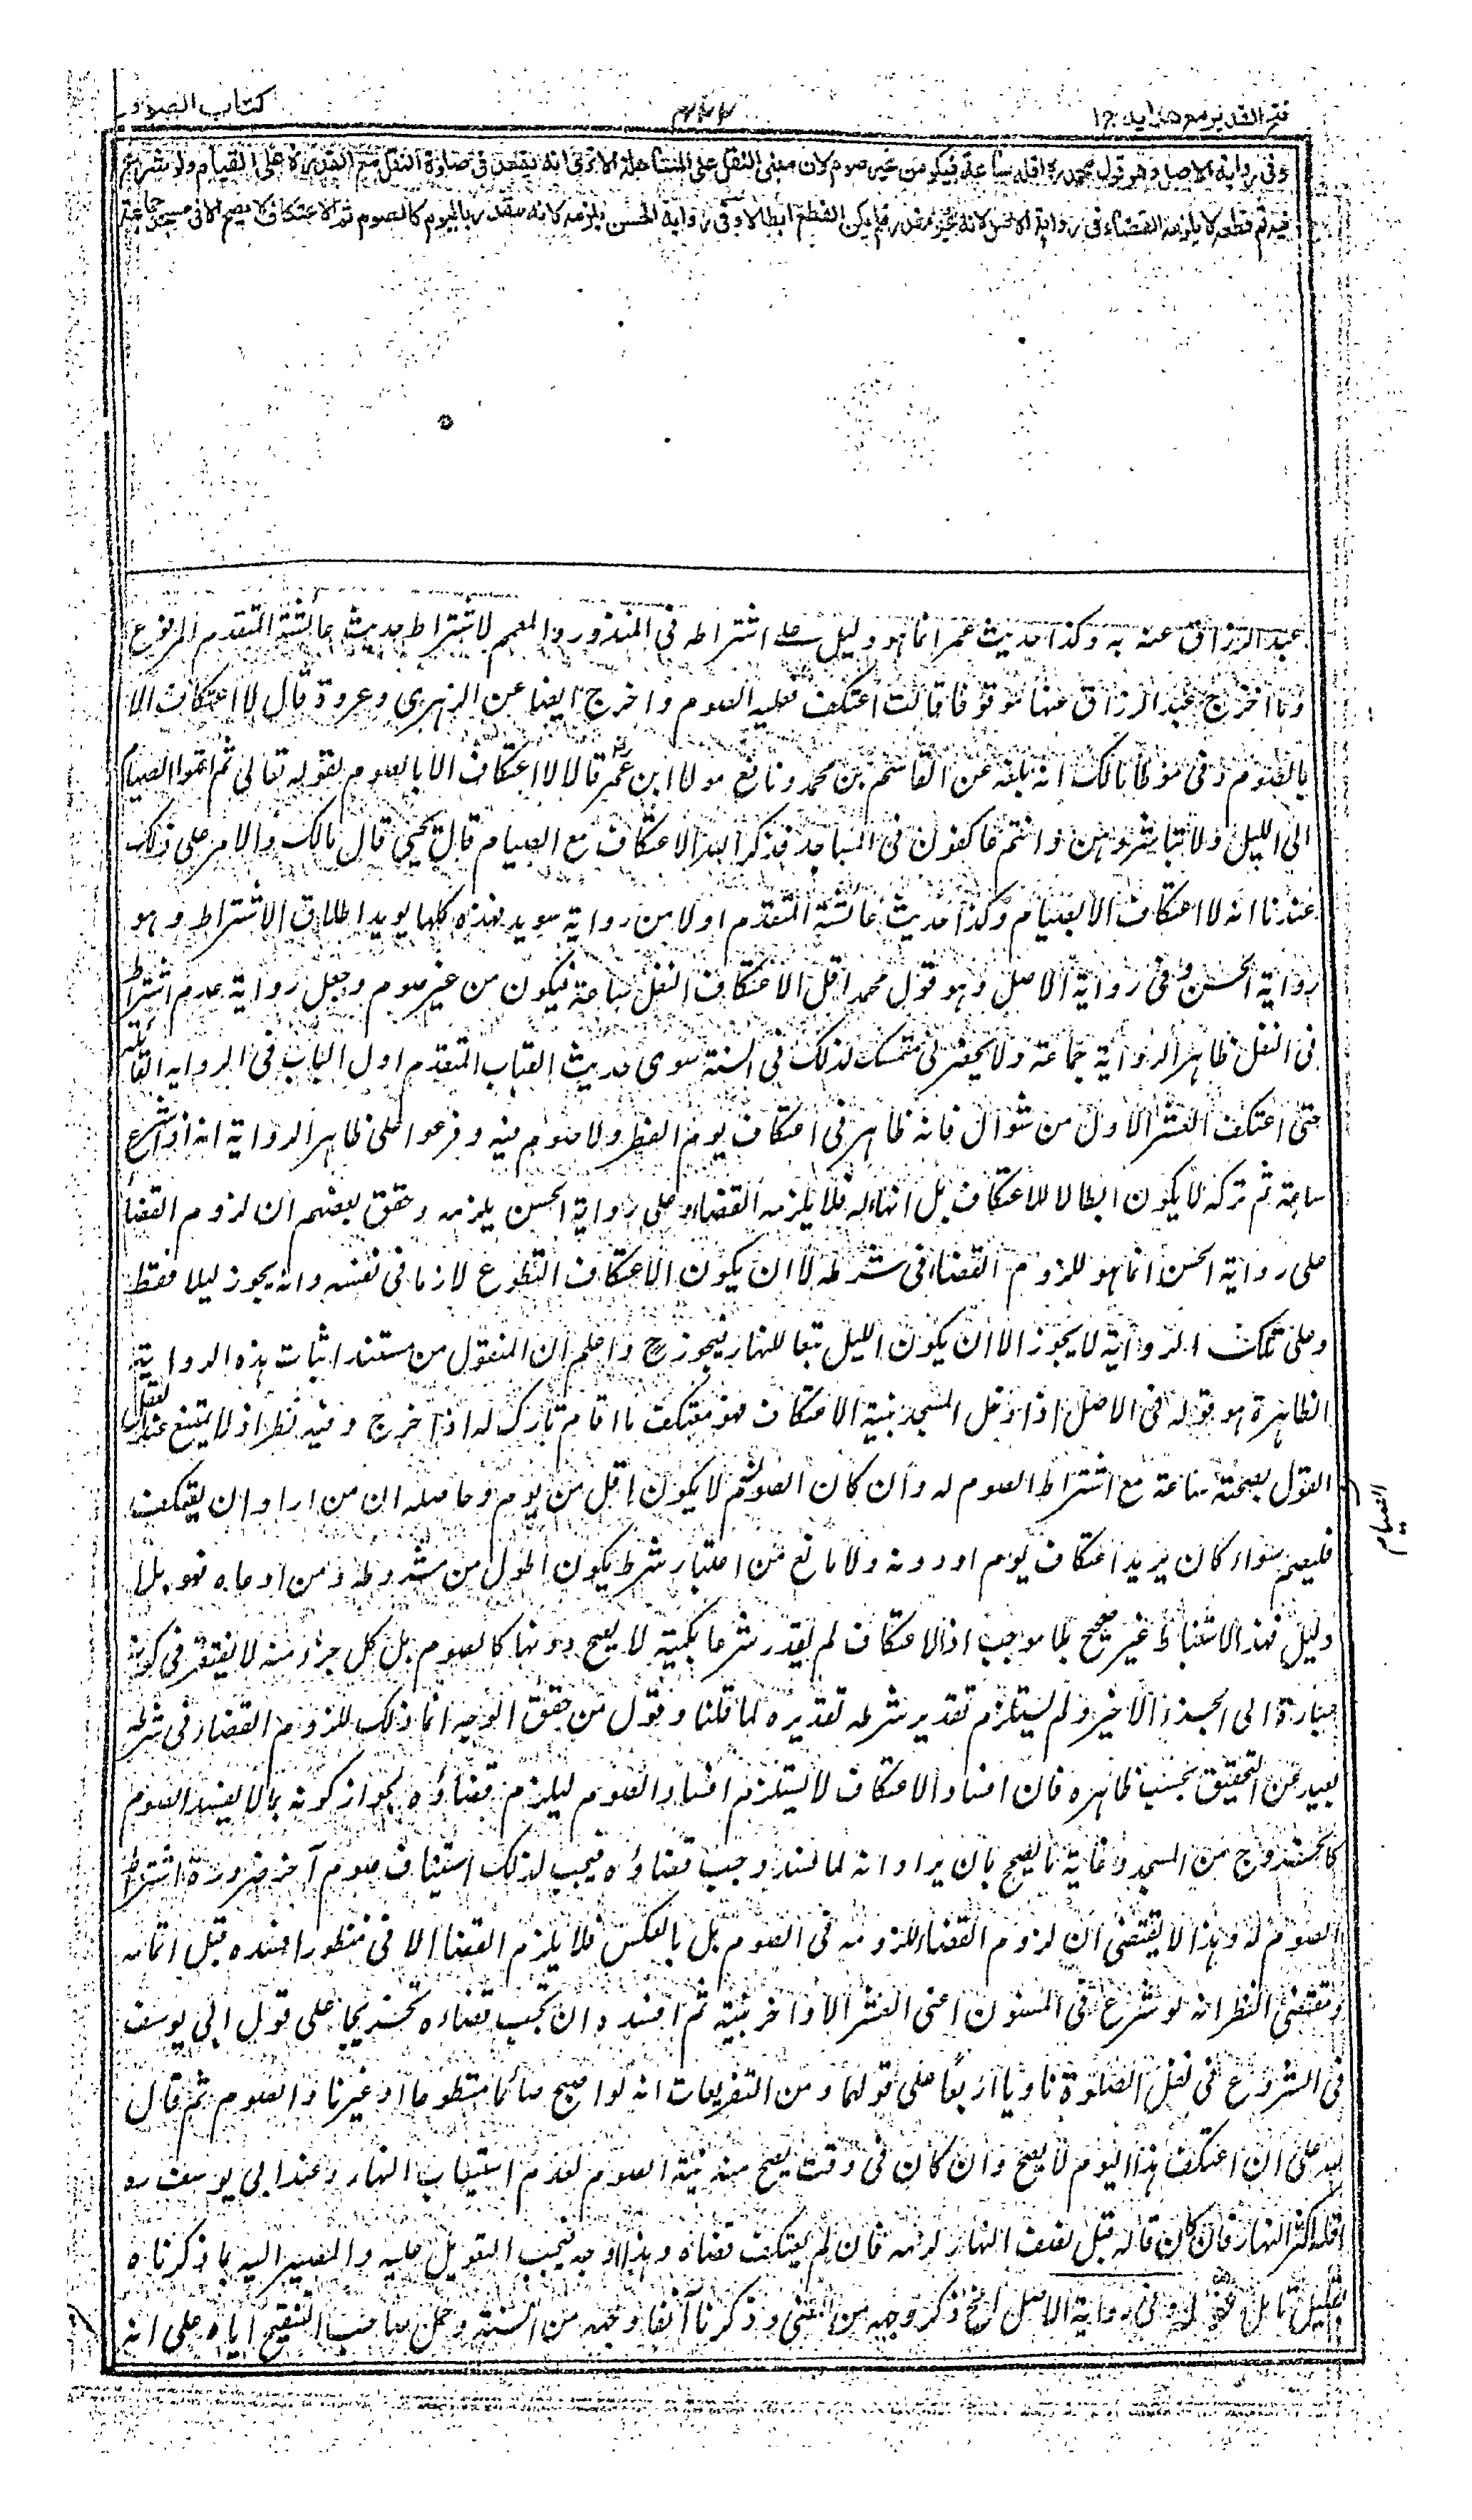 فتح القدير مع هدايه ج ١
كتاب الصوم
وفى رواية الاصل وهو قول محمد رح اقله ساعة فيكون من غير صوم لان مبنى النفل على المساهلة الا ترى انه يقعد فى صلوة النفل مع القدرة على القيام ولو شرع
فيه ثم قطعه لا يلزمه القضاء فى رواية الاصل لانه غير مقدر فلم يكن القطع ابطالا وفى رواية الحسن يلزمه لانه مقدر باليوم كالصوم ثم الاعتكاف لا يصح الا فى مسجد جماعة
عبد الرزاق عنه به وكذا حديث عمر انما هو دليل على اشتراطه فى المنذور والمعمم لاشتراطه حديث عائشة المتقدم المرفوع
وما اخرج عبد الرزاق عنها موقوفا قالت من اعتكف فعليه الصوم واخرج ايضا عن الزهرى وعروة قال لا اعتكاف الا
بالصوم وفى موطأ مالك انه بلغه عن القاسم بن محمد ونافع مولى ابن عمر قالا لا اعتكاف الا بالصوم لقوله تعالى ثم اتموا الصيام
الى الليل ولا تباشروهن وانتم عاكفون فى المساجد فذكر الله الاعتكاف مع الصيام قال يحيى قال مالك والامر على ذلك
عندنا انه لا اعتكاف الا بصيام وكذا حديث عائشة المتقدم اولا من رواية سويد فهذه كلها يويد اطلاق الاشتراط وهو
رواية الحسن وفى رواية الاصل وهو قول محمد اقل الاعتكاف النفل ساعة فيكون من غير صوم وجعل رواية عدم اشتراطه
فى النفل ظاهر الرواية جماعة ولا يحضرنى متمسك لذلك فى السنة سوى حديث القباب المتقدم اول الباب فى الرواية القائلة
حتى اعتكف العشر الاول من شوال فانه ظاهر فى اعتكاف يوم الفطر ولا صوم فيه وفرعوا على ظاهر الرواية انه اذا شرع
ساعة ثم تركه لا يكون ابطالا للاعتكاف بل انهاء له فلا يلزمه القضاء وعلى رواية الحسن يلزمه وحقق بعضهم ان لزوم القضاء
على رواية الحسن انما هو للزوم القضاء فى شرطه لا ان يكون الاعتكاف التطوع لازما فى نفسه وانه يجوز ليلا فقط
وعلى تلك الرواية لا يجوز الا ان يكون الليل تبعا للنهار فيجوز ح واعلم ان المنقول من مستند اثبات هذه الرواية
الظاهرة هو قوله فى الاصل اذا دخل المسجد بنية الاعتكاف فهو معتكف ما اقام تارك له اذا خرج وفيه نظر اذ لا يمتنع عند العقل
القول بصحته ساعة مع اشتراط الصوم له وان كان الصوم لا يكون اقل من يوم وحاصله ان من اراد ان يعتكف
الصيام
فليصم سواء كان يريد اعتكاف يوم او دونه ولا مانع من اعتبار شرط يكون اطول من مشروطه ومن ادعاه فهو بلا
دليل فهذا الاستنباط غير صحيح بلا موجب اذ الاعتكاف لم يقدر شرعا بكمية لا يصح دونها كالصوم بل كل جزء منه لا يفتقر فى كونه
عبادة الى الجزء الاخير ولم يستلزم تقدير شرطه تقديره لما قلنا وقول من حقق الوجه انما ذلك للزوم القضاء فى شرطه
بعيد عن التحقيق بحسب ظاهره فان افساد الاعتكاف لا يستلزم افساد الصوم ليلزم قضاؤه لجواز كونه بما لا يفسد الصوم
كالخروج من المسجد وغاية ما يصح بان يراد انه لما فسد وجب قضاؤه فيجب لذلك استيناف صوم آخر ضرورة اشتراط
الصوم له وهذا لا يقتضى ان لزوم القضاء للزومه فى الصوم بل بالعكس فلا يلزم القضاء الا فى منذور افسده قبل اتمامه
ومقتضى النظر انه لو شرع فى المسنون اعنى العشر الاواخر بنيته ثم افسده ان يجب قضاءه تخريجا على قول ابى يوسف
فى الشروع فى نفل الصلوة ناويا اربعا على قولهما ومن التفريعات انه لو اصبح صائما متطوعا او غير ناو الصوم ثم قال
لله على ان اعتكف هذا اليوم لا يصح وان كان فى وقت يصح منه نية الصوم لعدم استيعاب النهار وعند ابى يوسف رح
اقله اكثر النهار فان كان قاله قبل نصف النهار لزمه فان لم يعتكف قضاه وهذا اوجه فيجب التعويل عليه والمصير اليه بما ذكرناه
بقليل تامل قوله وفى رواية الاصل الخ ذكر وجهه من المعنى وذكرنا آنفا وجهه من السنة وحمل صاحب التنقيح اياه على انه